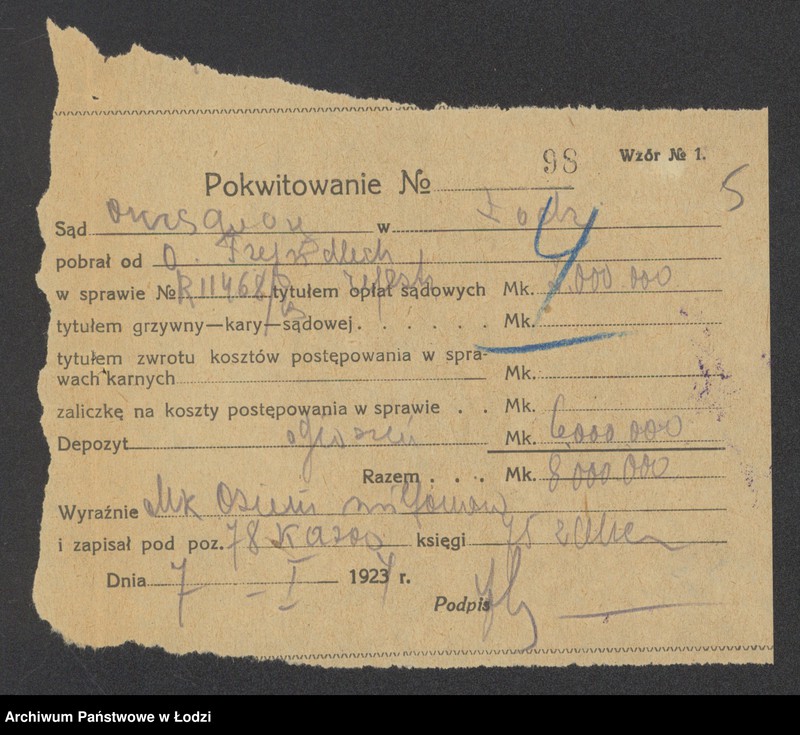 98 Wzór № 1.
Pokwitowanie № 5
Sąd okręgowy w Łodzi
pobrał od O.
w sprawie № tytułem opłat sądowych Mk. 2.000 000
4
tytułem grzywny—kary—sądowej . . . . . . Mk.
tytułem zwrotu kosztów postępowania w spra-
wach karnych Mk.
zaliczkę na koszty postępowania w sprawie . . Mk.
Depozyt ogłoszeń Mk. 6000 000
Razem . . . Mk. 8 000 000
Wyraźnie Mk Osiem milionów
i zapisał pod poz. 78 księgi 45
Dnia 7 - I 1924 r.
Podpis
Archiwum Państwowe w Łodzi